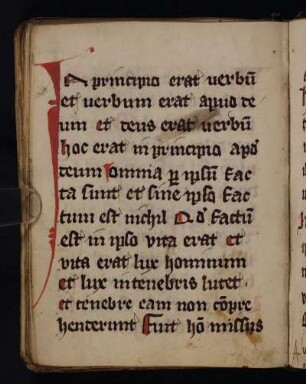 In principio erat verbū
et verbum erat apud de
um et deus erat verbū
hoc erat in principio apd̄
deum omnia p ip̄um fac
ta sunt et sine ipso fac
tum est nichil Qd̄ factū
est in ipso vita erat et
vita erat lux hominum
et lux in tenebris lucet
et tenebre eam non cōpre
henderunt Fuit hō missus